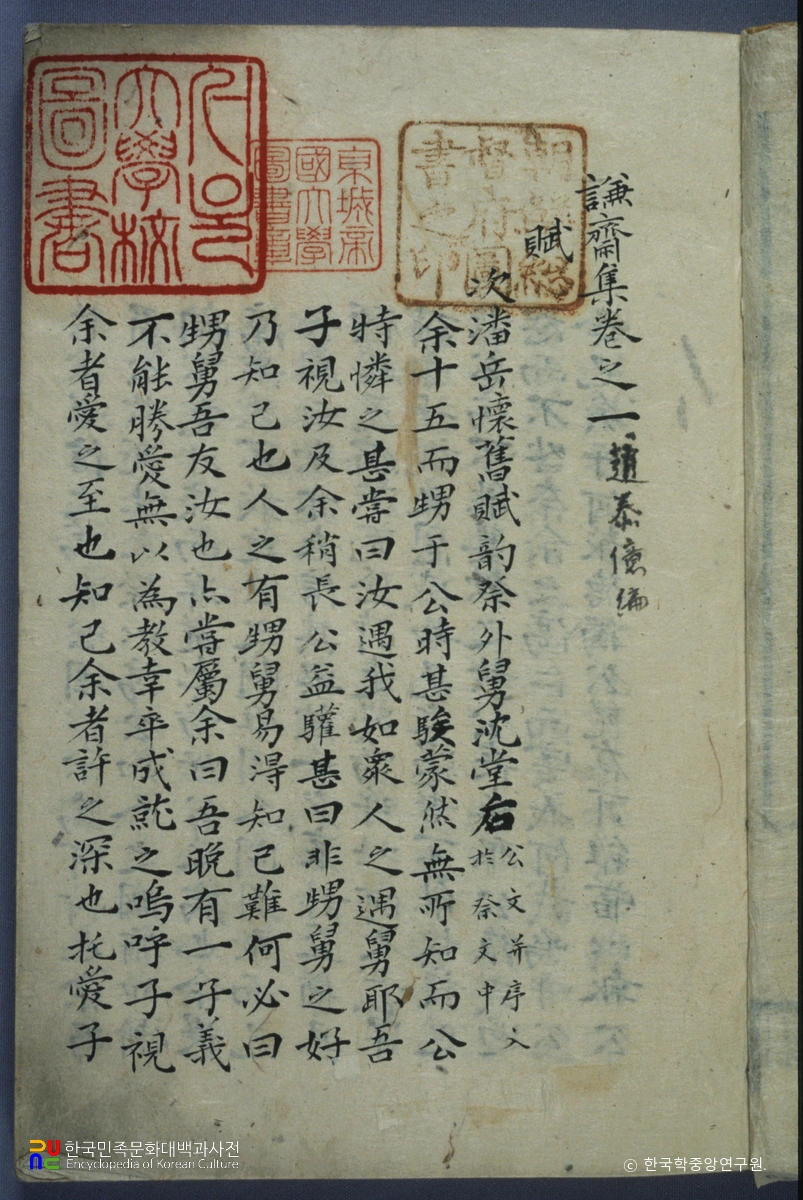 謙齋集卷之一 趙泰億編
賦
次潘岳懷舊賦韵祭外舅沈堂后 公文并序入
於祭文中
余十五而甥于公時甚騃蒙然無所知而公
特憐之甚嘗曰汝遇我如衆人之遇舅耶吾
子視汝及余稍長公益驩甚曰非甥舅之好
乃知己也人之有甥舅易得知己難何必曰
甥舅吾友汝也亦嘗屬余曰吾晩有一子義
不能勝愛無以為教幸卒成就之嗚呼子視
余者愛之至也知己余者許之深也托愛子
朝鮮總
督府圖
書之印
京城帝
國大學
圖書章
서울
大學校
圖書
한국민족문화대백과사전
Encyclopedia of Korean Culture
ⓒ 한국학중앙연구원.